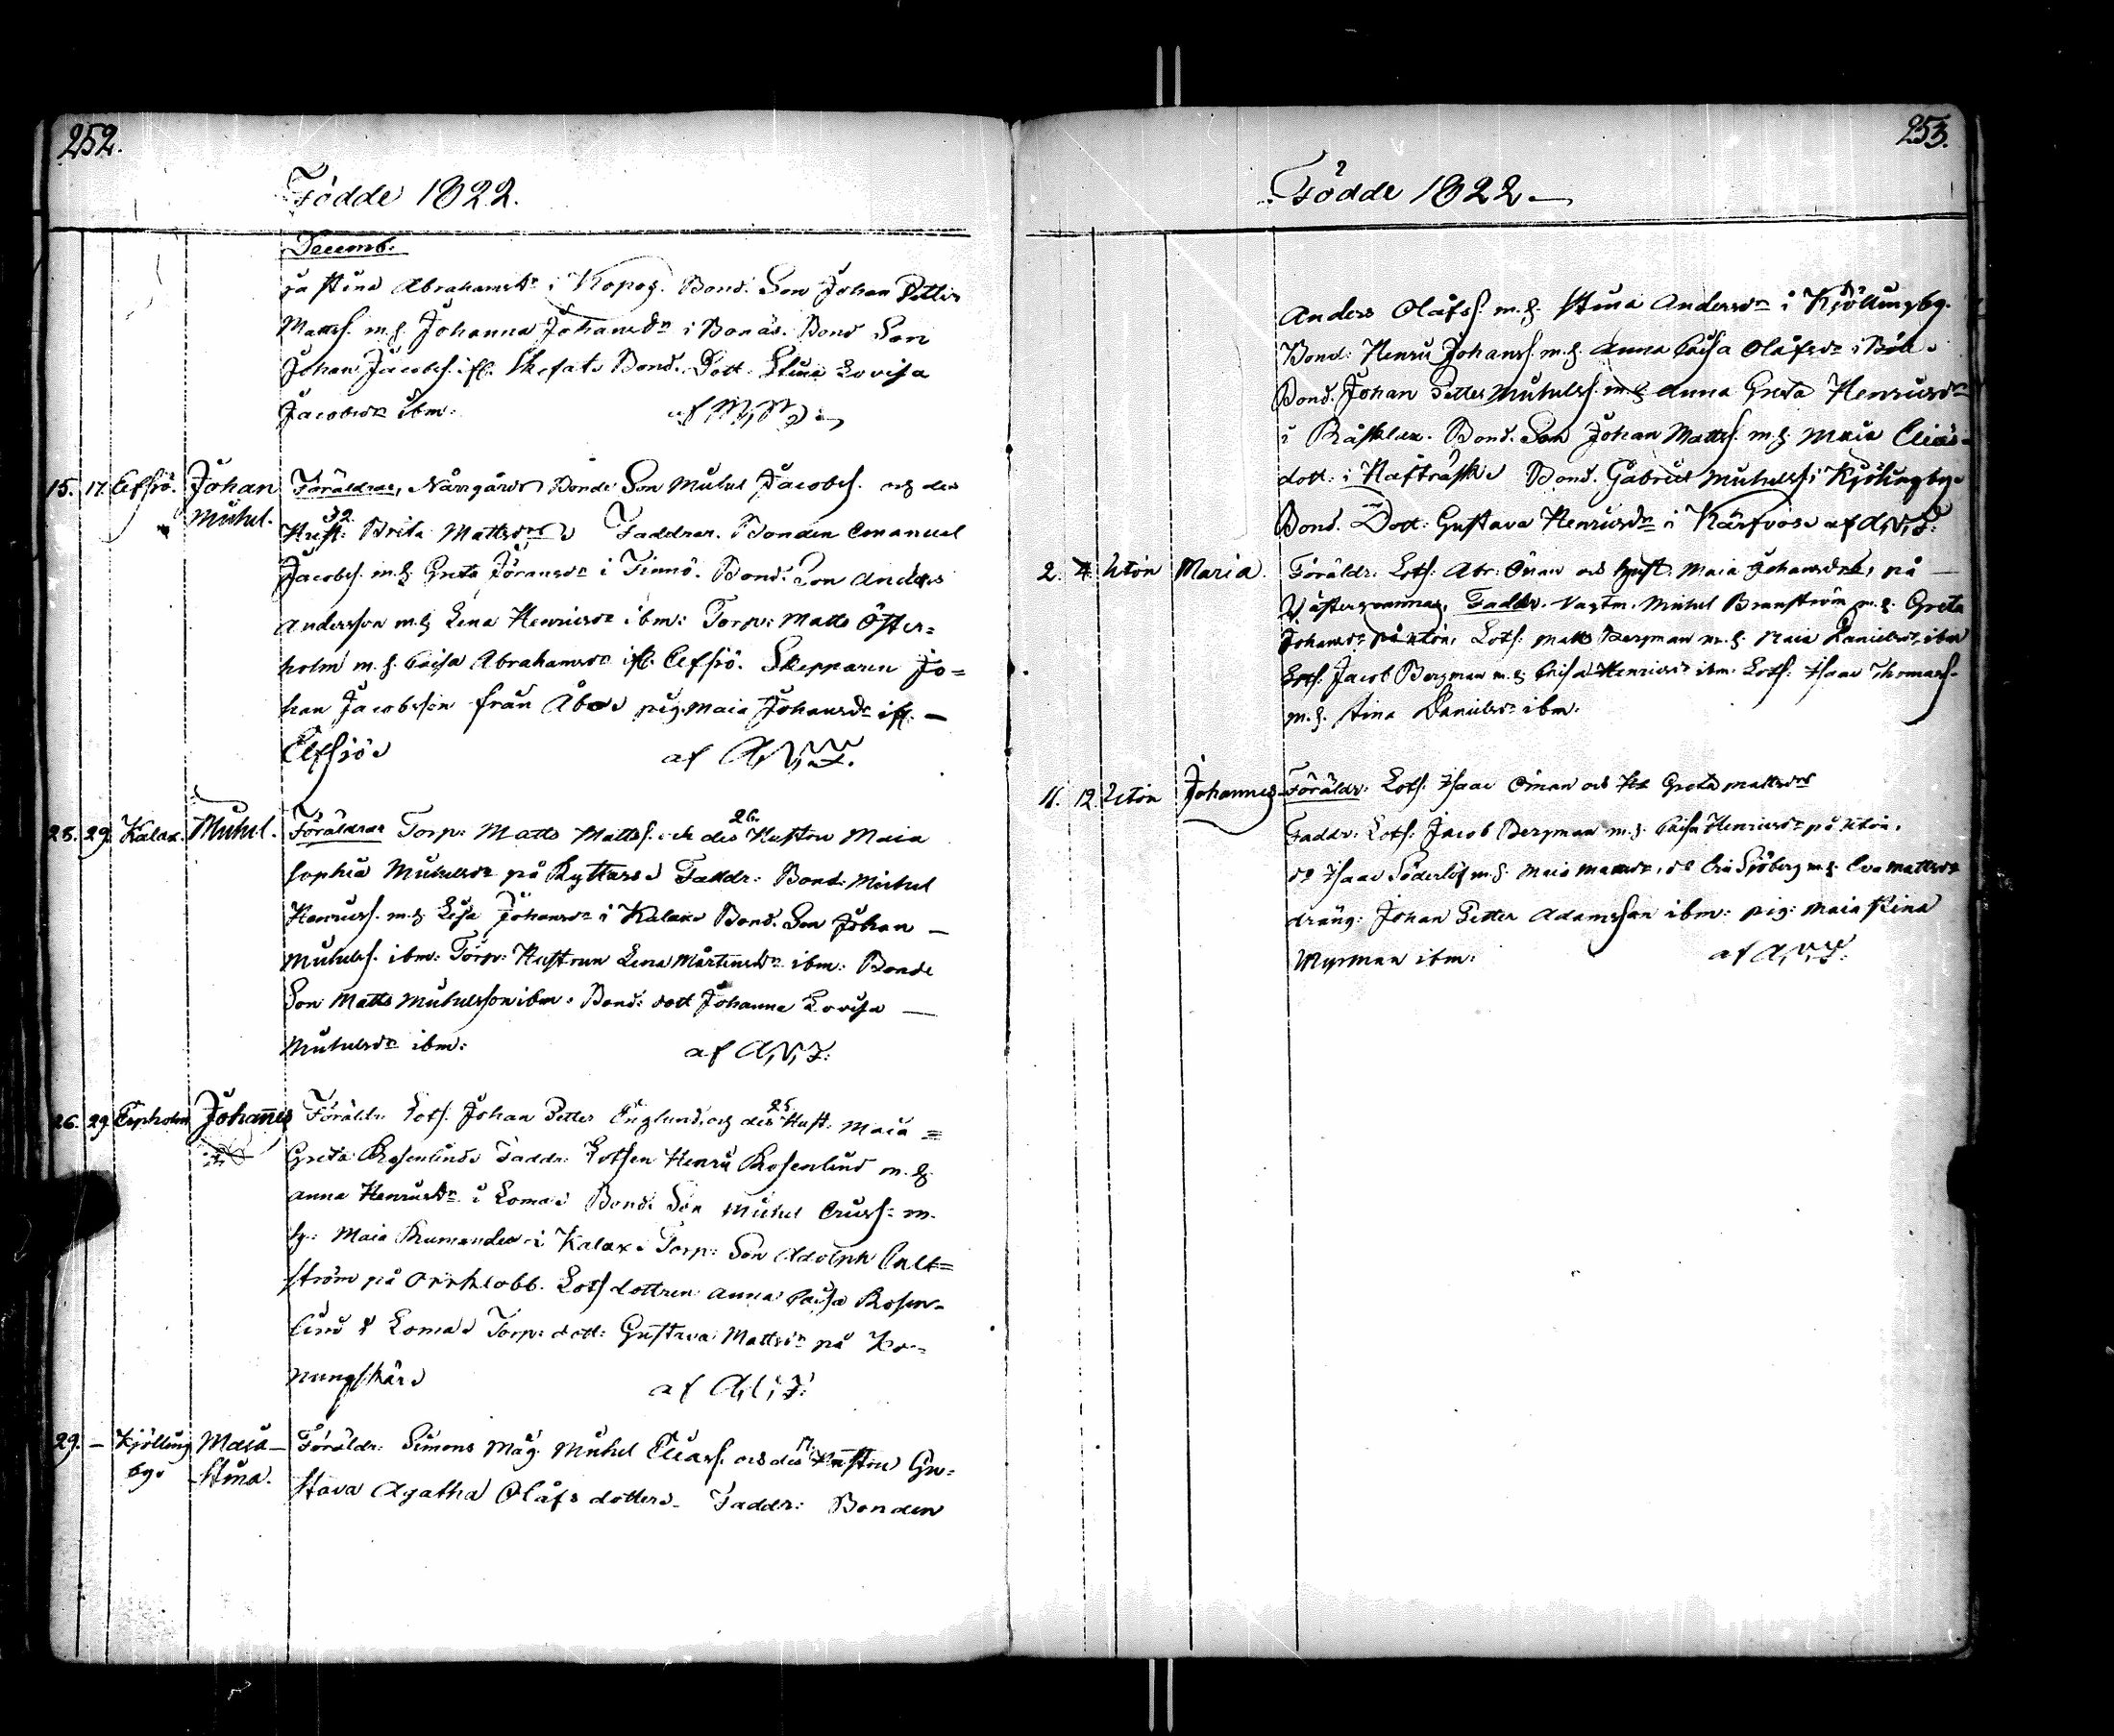 252.
Födde 1822.
Decemb.
ja Stina Abrahamsdr i Kopog. Bond. Son Johan Petter
Matts. m. h. Johanna Johansdr i Bonäs. Bond Son
Johan Jacobs. ifr. Skafat. Bond. Dott. Stina Lovisa
Jacobsdr ibm: af
15. 17. Elfsjö. Johan Michel. Föräldrar, Närrgårds Bonde Son Michel Jacobs. och des
32
Hust: Brita Mattsdr Faddrar. Bonden Emanuel
Jacobs. m. h. Greta Jöransdr i Finnö. Bond. Son Anders
Andersson m. h. Lena Henricsdr ibm: Torp: Matts Öster=
holm m. h. Caisa Abrahamsdr ifr. Elfsjö. Skepparen Jo=
han Jacobsson från Åbo. pig. Maia Johansdr ifr. —
Elfsjö af A. V. F.
28. 29. Kalax. Michel. Föräldrar Torp: Matts Matts. och des 26. Hustru Maia
Sophia Michelsdr på Ryttars. Faddr: Bond: Michel
Henrics. m. h. Lisa Johansdr i Kalax. Bond. Son Johan —
Michels. ibm: Torp: Hustrun Lena Mårtensdr ibm: Bonde
Son Matts Michelsson ibm: Bond: dott Johanna Lovisa —
Michelsdr ibm: af A. V. F:
26. 29. Johannes Föräldr: Lots. Johan Petter Englund och des 25. Hust. Maia =
Greta Rosenlund. Faddr: Lotsen Henric Rosenlund m. h.
Anna Henricsdr i Loma. Bond: Son Michel Erics: m.
h: Maia Rumander i Kalax. Torp: Son Adolph Calt=
ström på Orrklobb. Lots dottren Anna Caisa Rosen-
lund i Loma. Torp: dott: Gustava Mattsdr på Ko-
nungskär. af A. V. F:
29. — Kjölling by. Maia — Stina. Föräldr: Simons Måg. Michel Elias. och des 17. Hustru Gu=
stava Agatha Olåfs dotter. Faddr: Bonden
253.
Födde 1822 —
Anders Olåfs. m. h. Stina Andersdr i Kjöllingby.
Bond: Henric Johans. m. h. Anna Caisa Olåfsdr i Böle.
Bond. Johan Petter Michels. m. h. Anna Greta Henricsdr
i Bond. Son Johan Matts. m. h. Maia Elias-
dott: i Nåfträsk. Bond. Gabriel Michels. i Kjölingby.
Bond. Dott: Gustava Henricsdr i Kärfvos. af A. V. F:
2. 4. Utön Maria. Föräldr. Lots: Abr: Öman och Hust: Maia Johansdr, på —
Faddr. Michel Branström m. h. Greta
Johansdr på Utön. Lots: Matts Bergman m. h. Maia Danielsdr ibm
Lots. Jacob Bergman m. h. Caisa Henricsdr ibm: Lots: Isaac Thomass.
m. h. Stina Danielsdr ibm.
11. 12. Utön Johannes Föräldr. Lots. Isaac Öman och Greta Mattsdr
Faddr: Lots: Jacob Bergman m. h. Caisa Henricsdr på Utön.
do Isaac Söderlöf m. h. Maia Mattsdr, do Eric Sjöberg m. h. Eva Mattsdr
dräng: Johan Petter Adamsson ibm: pig: Maia Stina
Myrman ibm: af A. V. F: